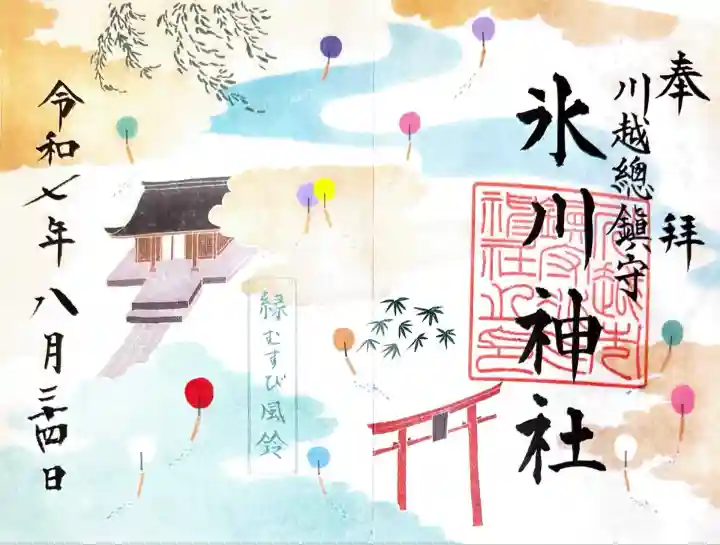 奉拜
川越總鎮守
氷川神社
縁むすび風鈴
令和七年八月二十四日